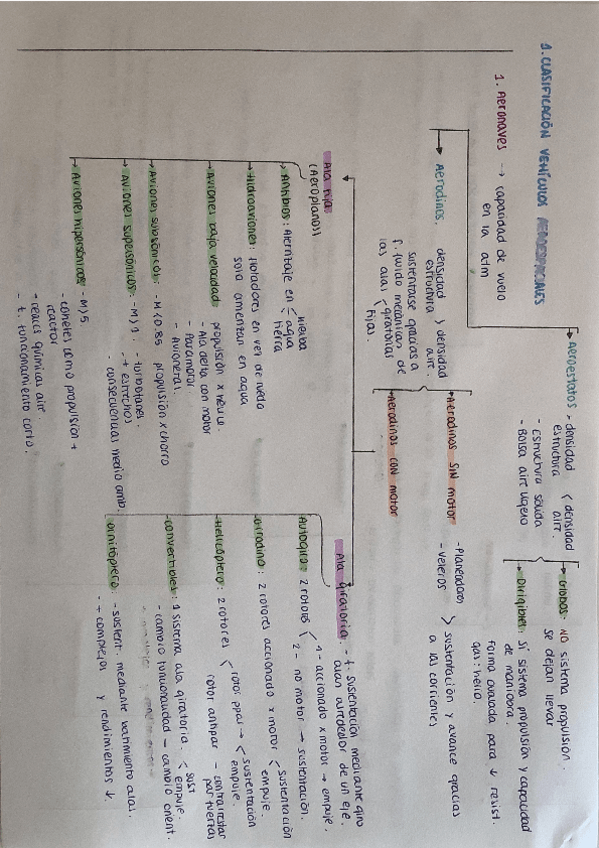 1. CLASIFICACIÓN VEHÍCULOS AEROESPACIALES
1. Aeronaves → capacidad de vuelo
en la atm
→ Aeroestatos > densidad < densidad
estructura aire.
- Estructura sólida
- Bolsa aire ligero
→ Globos: NO sistema propulsión.
se dejan llevar
→ Dirigibles: SÍ sistema propulsión y capacidad
de maniobra.
Forma ovalada para ↓ resist.
gas: helio.
→ Aerodinos. densidad > densidad
estructura aire.
sustentarse gracias a
f. fluido mecánicas de
las alas < giratorias
fijas.
→ Aerodinos SIN motor
- Planeadores
- veleros > sustentación y avance gracias
a las corrientes
→ Aerodinos CON motor
Ala fija
(Aeroplanos)
→ Anfibios: Aterrizaje en < nieve
agua
tierra
→ Hidroaviones: Flotadores en vez de rueda
solo amerizan en agua
→ Aviones baja velocidad propulsión x hélice.
- Ala delta con motor
- Paramotor
- Avionetas.
→ Aviones subsónicos: - M<0.85 propulsión x chorro
→ Aviones supersónicos: - M>1 - turbofanes
- + estrechos
- consecuencias medio amb.
→ Aviones hipersónicos: - M>5.
- cohetes como propulsión +
reactor
- reacc químicas aire.
- t. funcionamiento corto.
Ala giratoria. - f. sustentación mediante giro
alas alrededor de un eje.
Autogiro: 2 rotores < 1 - accionado x motor → empuje.
2 - no motor → sustentación.
→ Girodino: 2 rotores accionado x motor < sustentación
empuje.
→ Helicóptero: 2 rotores < rotor ppal → < sustentación
empuje.
rotor antipar - contrarrestar
par fuerzas
→ convertibles: 1 sistema ala giratoria. < sust
empuje.
- cambio funcionalidad - cambio orient.
→ Ornitóptero: - sustent. mediante batimiento alas.
- + complejos y rendimientos ↓.